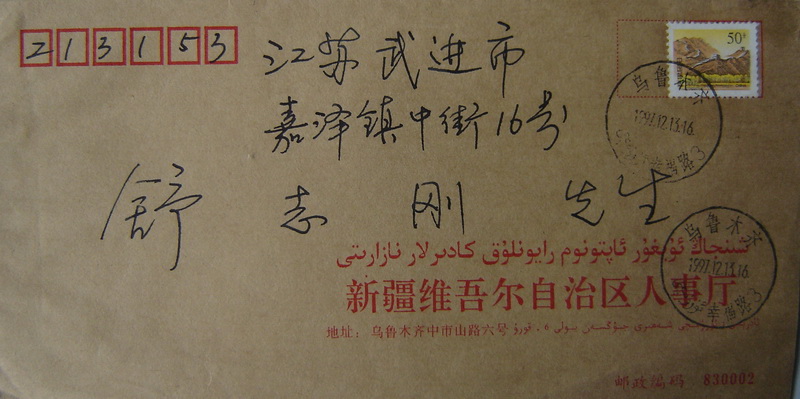 213153
江苏武进市
嘉泽镇中街16号
舒志刚 先生
50分
乌鲁木齐
1997.12.13.16
乌鲁木齐
1997.12.13.16
شىنجاڭ ئۇيغۇر ئاپتونوم رايونلۇق كادىرلار نازارىتى
新疆维吾尔自治区人事厅
地址：乌鲁木齐中市山路六号
邮政编码 830002